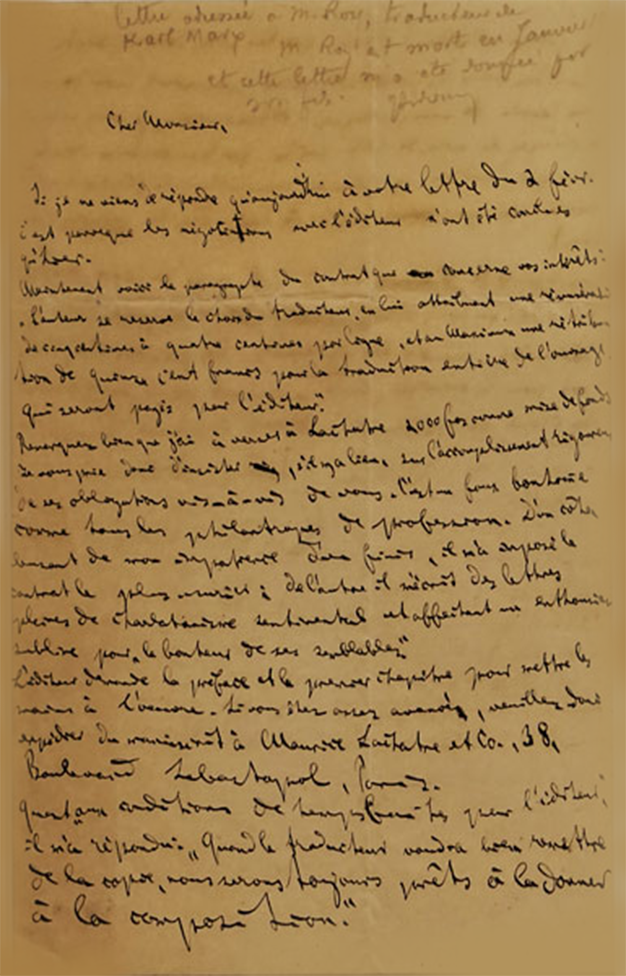 lettre adressée à M. Roy, traducteur de
Karl Marx
M. Roy est mort en Janvier
et cette lettre m'a été donnée par
son fils.
Cher Monsieur,
Si je ne viens de répondre qu'aujourd'hui à votre lettre du 2 févr.
c'est parceque les négotiations avec l'éditeur n'ont été conclues
qu'hier.
Maintenant voici le paragraphe du contrat que concerne vos intérêts:
"L'auteur se réserve le choix du traducteur, en lui attribuant une rémunérati
de cinq centimes à quatre centimes par ligne, et au Maximum une rétribu
tion de quinze cent francs pour la traduction entière de l'ouvrage
qui seront payés par l'éditeur."
Remarquez bien que j'ai à verser à Lachatre 2000 frcs comme mise de fonds
Je vous prie donc d'insister, s'il y a lieu, sur l'accomplissement rigoureux
de ses obligations vis-à-vis de vous. C'est un faux bonhomme
comme tous les philantropes de profession. D'un côté,
de mon impatience d'en finir, il m'a imposé le
contrat le plus usurier; de l'autre il m'écrit des lettres
pleines de charlatanisme sentimental et affectant un enthousias
sublime pour "le bonheur de ses semblables."
L'éditeur demande la préface et le premier chapitre pour mettre les
mains à l'oeuvre. Si vous êtes assez avancé, veuillez donc
expédier du manuscrit à Maurice Lachatre et Co., 38,
Boulevard Sebastopol, Paris.
Quant aux conditions de temps fixées par l'éditeur,
il m'a répondu: "Quand le traducteur voudra bien remettre
de la copie, nous serons toujours prêts à la donner
à la composition."